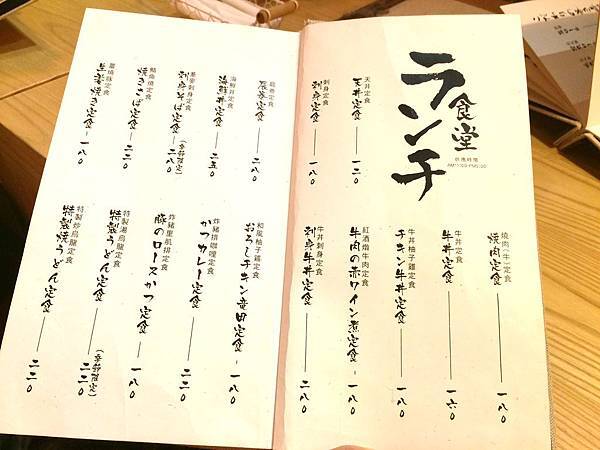 食堂
ランチ
供應時間
天丼定食
天丼定食 一八〇
刺身定食
刺身定食 一八〇
燒肉(牛)定食
焼肉定食 一八〇
牛丼定食
牛丼定食 一六〇
牛丼柚子雞定食
チキン牛丼定食 一八〇
紅酒燉牛肉定食
牛肉の赤ワイン煮定食 一八〇
牛丼刺身定食
刺身牛丼定食 二八〇
定食 二八〇
海鮮丼定食
海鮮丼定食 二五〇
蕎麥刺身定食
刺身そば定食 二八〇
(季節限定)
鯖魚燒定食
焼きさば定食 二二〇
薑燒豬定食
生姜焼き定食 一八〇
和風柚子雞定食
おろしチキン竜田定食 一八〇
炸豬排咖哩定食
かつカレー定食 二二〇
炸豬里肌排定食
豚のロースかつ定食 一八〇
特製湯烏龍定食
特製うどん定食 二二〇
(季節限定)
特製炒烏龍定食
特製焼うどん定食 二二〇